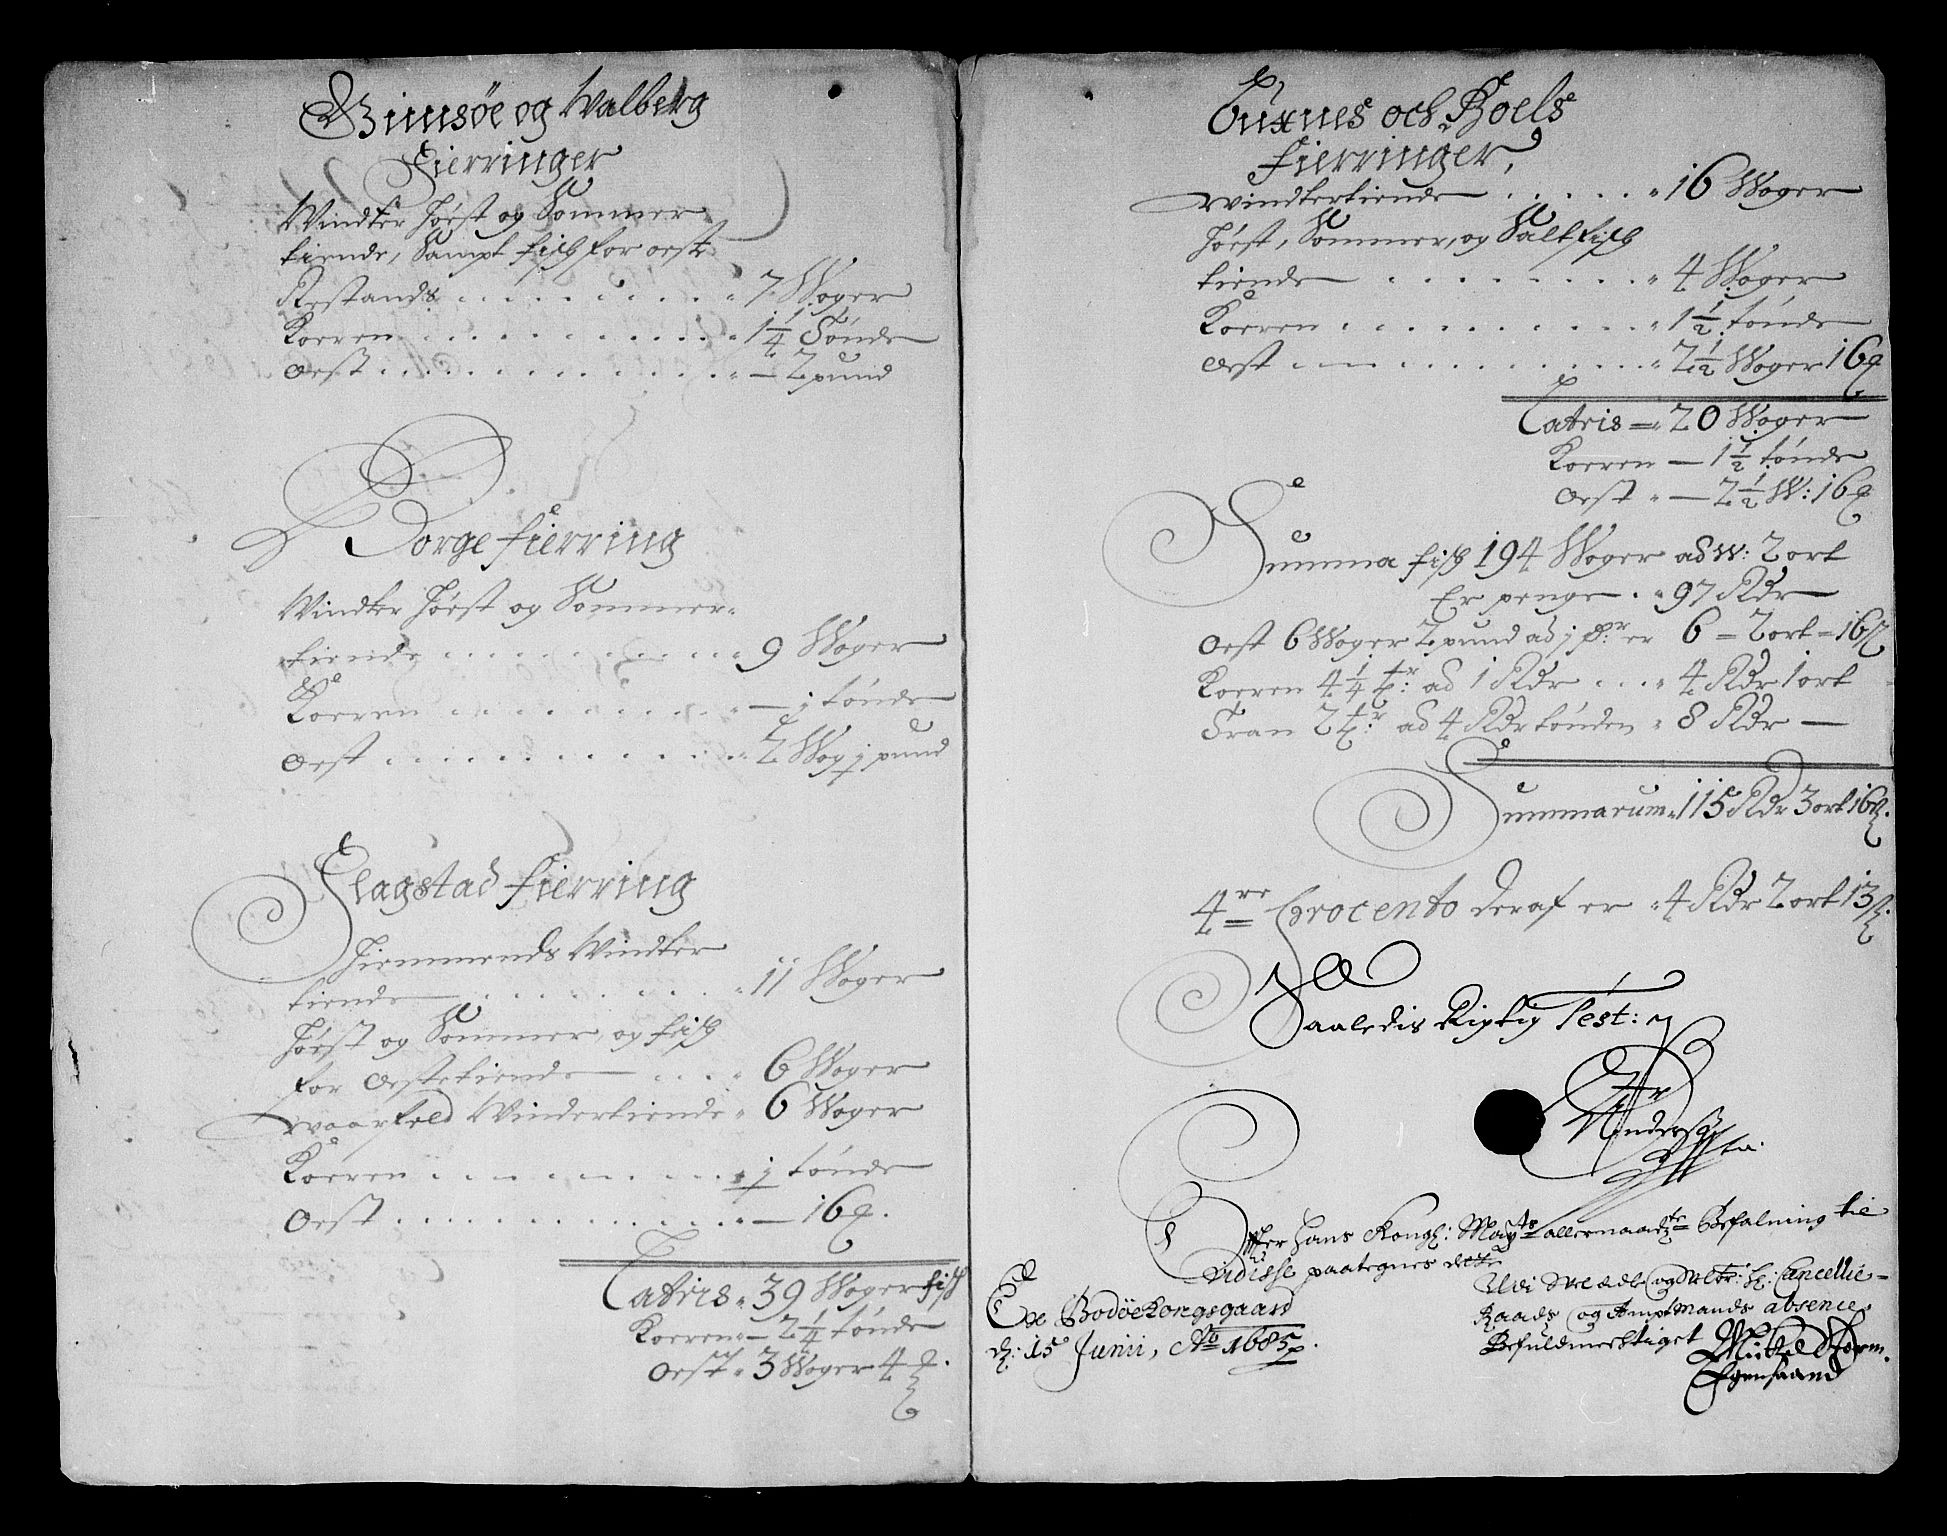 Gimsøe og Walberg
Fierringer
Windter Høest og Sommer
tiende, Sampt fisk for oest
Restands . . . . . . . . . . 7 Woger
Koeren . . . . . . . . . . 1 1/4 Tønde
Oest . . . . . . . . . . — 2 pund
Borge fierring
Windter Høest og Sommer
tiende . . . . . . . . . . 9 Woger
Koeren . . . . . . . . . . — j tønde
Oest . . . . . . . . . . 2 Wog j pund
Flagstad fierring
Hiemmends Windter
tiende . . . . . . . . . . 11 Woger
Høest og Sommer, og fisk
for Oestetiende — . . . . 6 Woger
waarfeld Windertiende 6 Woger
Koeren . . . . . . . . . . j tønde
Oest . . . . . . . . . . — 16 ℔.
Latris 39 Woger fisk
Koeren — 2 1/4 tønde
Oest 3 Woger 4 ℔.
Buxnes och Hoels
fierringer,
windtertiende . . . . . . 16 Woger
Høest, Sommer, og Saltfisk
tiende . . . . . . . . . . 4 Woger
Koeren . . . . . . . . . . 1 1/2 tønde
Oest . . . . . . . . . . 2 1/2 Woger 16 ℔
Latris = 20 Woger
Koeren — 1 1/2 tønde
Oest — 2 1/2 W: 16 ℔
Summa fisk 194 Woger ad W: 2 ort
Er penge . . 97 Rdr —
Oest 6 Woger 2 pund ad j er 6 = 2 ort = 16 ß
Koeren 4 1/4 tr: ad 1 Rdr . . . 4 Rdr 1 ort
Tran 2 tr: ad 4 Rdr tønden 8 Rdr —
Summarum 115 Rdr 3 ort 16 ß.
4re Procento deraf er 4 Rdr 2 ort 13 ß.
Saaledis Rigtig Test:
Anders
Effter Hans Kongl: Mayts allernaadste Befalning til
Vidisse paategnes dette
Udi Velædle og Velbr: Hr: Cancellie-
Ex Bodøe Kongsgaard
Raads og Amptmands absence
d: 15 Junii, Ao 1685.
Befuldmectiget Mickel Storm
Egenhaand